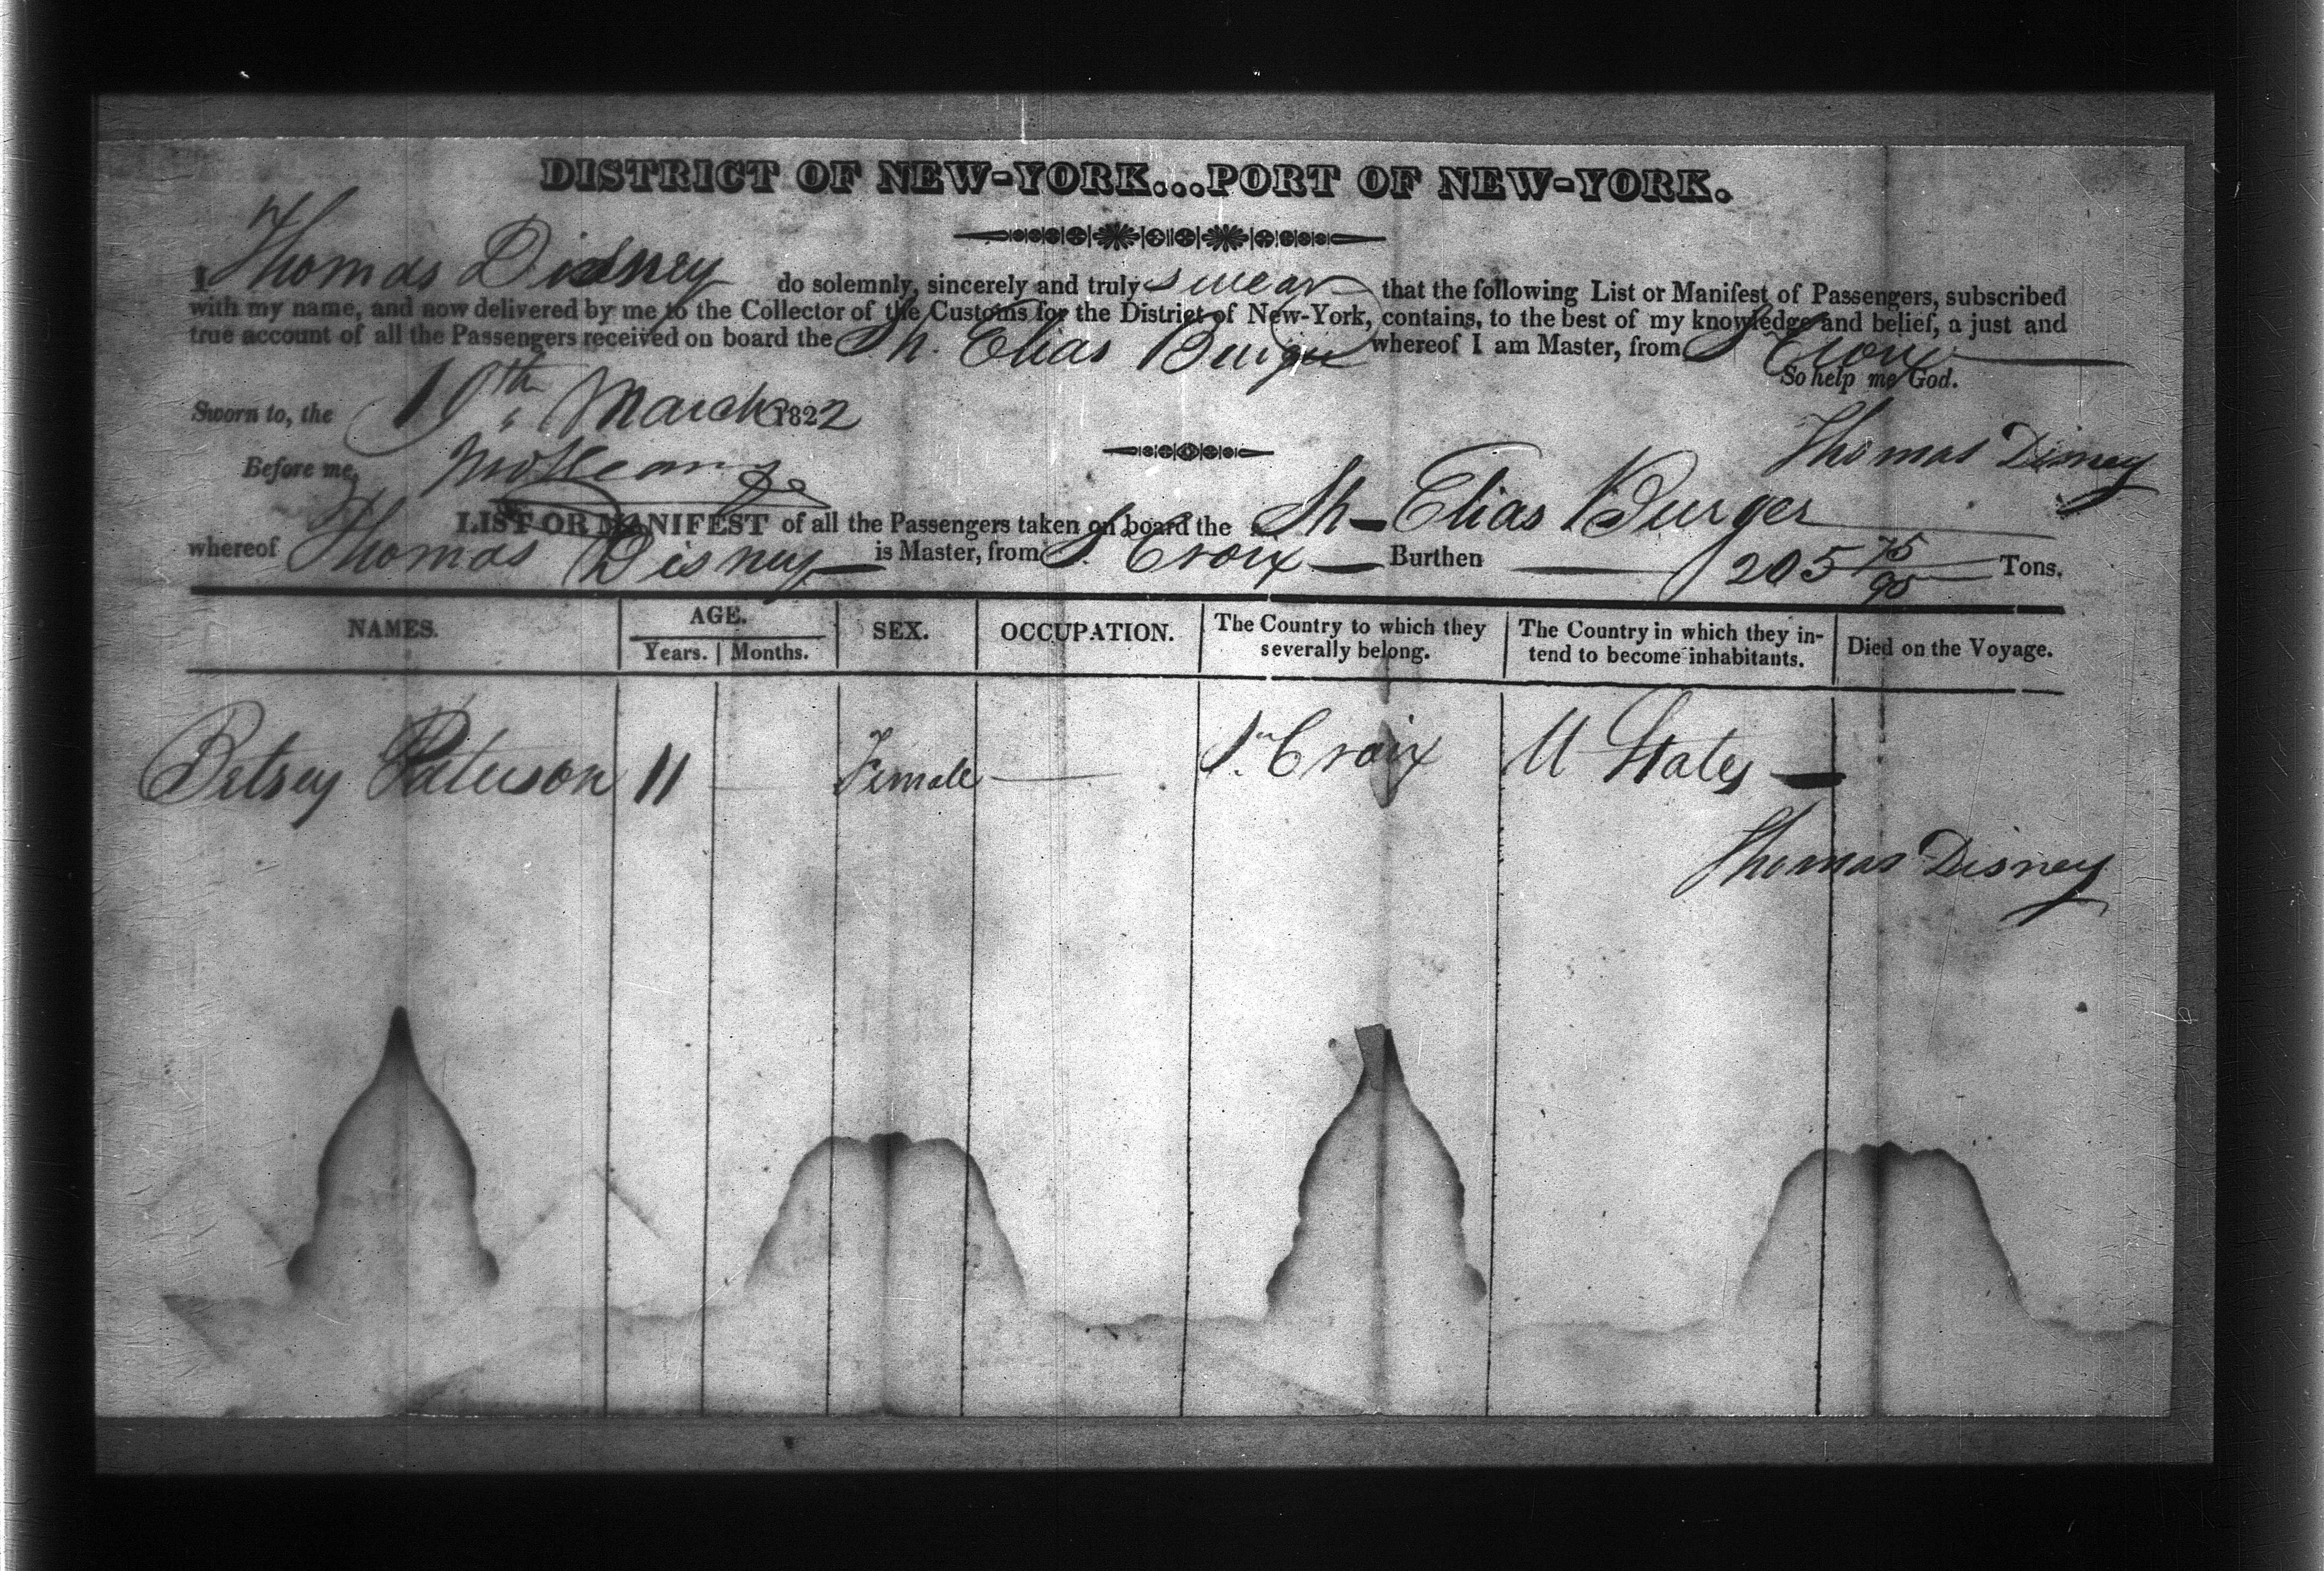 DISTRICT OF NEW-YORK...PORT OF NEW-YORK.
I Thomas Disney do solemnly, sincerely and truly swear that the following List or Manifest of Passengers, subscribed
with my name, and now delivered by me to the Collector of the Customs for the District of New-York, contains, to the best of my knowledge and belief, a just and
true account of all the Passengers received on board the Sh. Elias Burger whereof I am Master, from St Croix
So help me God.
Sworn to, the 19th March 1822
Thomas Disney
Before me,
LIST OR MANIFEST of all the Passengers taken on board the Sh - Elias Burger
whereof Thomas Disney is Master, from St Croix Burthen 205 75/95 Tons.
NAMES. AGE. SEX. OCCUPATION. The Country to which they severally belong. The Country in which they in-tend to become inhabitants. Died on the Voyage.
Years. Months.
Betsey Paterson 11 Female St Croix U States
Thomas Disney